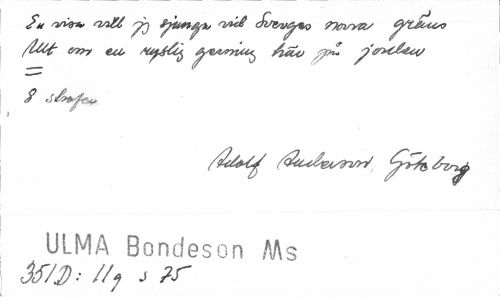 En visa vill jg sjunga vid Sverges norra gräns
Allt om en ryslig gerning här på jorden
=
8 strofer
Adolf Anderson, Göteborg
ULMA Bondeson Ms
351D: 11q s 75